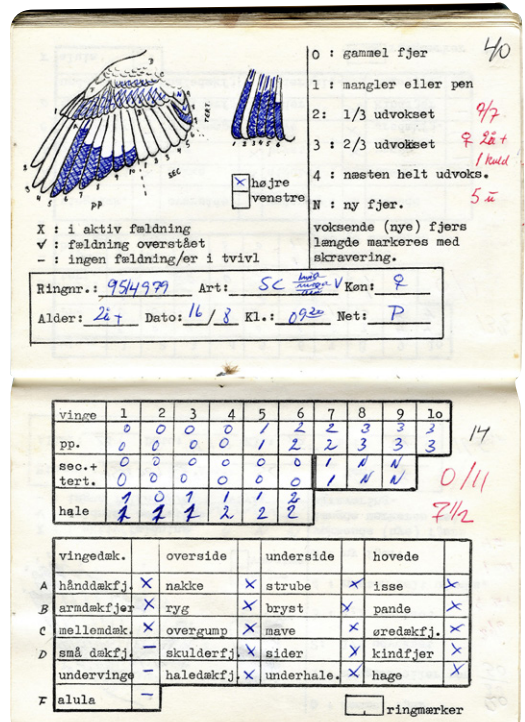 40
O : gammel fjer
1 : mangler eller pen
2: 1/3 udvokset 7/7
3 : 2/3 udvokset ♀ 2å+
1 kuld
4 : næsten helt udvoks.
5 ü
N : ny fjer.
voksende (nye) fjers
længde markeres med
skravering.
TERT.
SEC
PP
1 2 3 4 5 6
X højre
venstre
X : i aktiv fældning
√ : fældning overstået
- : ingen fældning/er i tvivl
Ringnr.: 9514979 Art: SC V Køn: ♀
Alder: 2å+ Dato: 16/8 Kl.: 09 30 Net: P
vinge 1 2 3 4 5 6 7 8 9 10
0 0 0 0 1 2 2 3 3 3
pp. 0 0 0 0 1 2 2 3 3 3
14
sec.+ 0 0 0 0 0 0 1 N N
tert. 0 0 0 0 0 0 1 N N
0/11
1 0 1 1 1 2
hale 1 1 1 2 2 2
7 1/2
vingedæk. overside underside hovede
A hånddækfj. X nakke X strube X isse X
B armdækfjer X ryg X bryst X pande X
C mellemdæk. X overgump X mave X øredækfj. X
D små dækfj. - skulderfj. X sider X kindfjer X
undervinge - haledækfj. X underhale. X hage X
F alula -
ringmærker